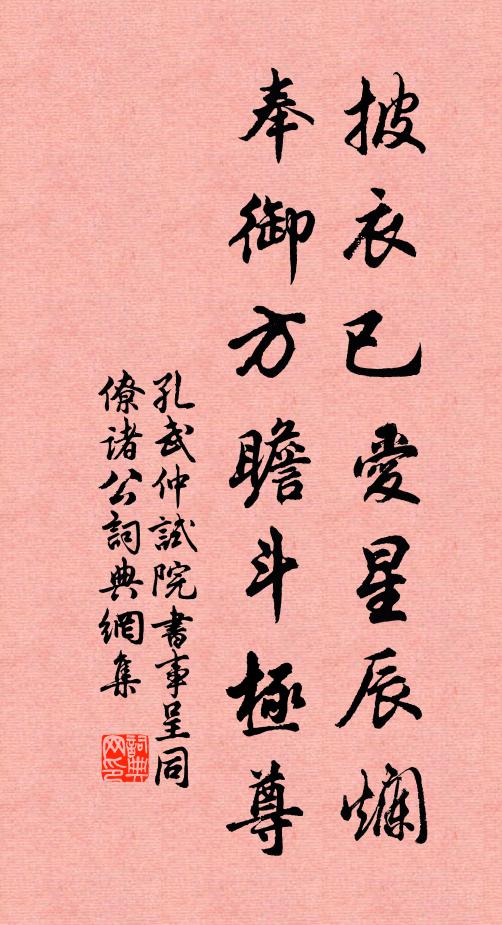 披衣已愛星辰爛
奉御方瞻斗極尊
孔武仲試院書事呈同
僚諸公詞典網集
詞典
网印